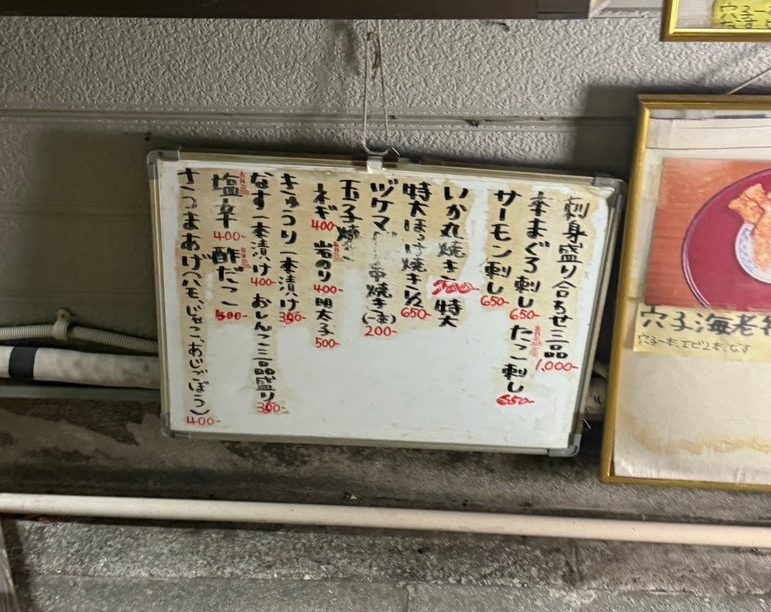 刺身盛り合わせ三品 1,000-
本まぐろ刺し 650- たこ刺し 650-
サーモン刺し 650-
いか丸焼き 700- 特大
特大ほっけ焼き 1/2 650-
ヅケマ 串焼き(一本) 200-
玉子焼
ネギ 400- 岩のり 400- 明太子 500-
きゅうり一本漬け 300-
なす一本漬け 400- おしんこ三品盛り 300-
塩辛 400- 酢だこ 500-
さつまあげ(ハモ、じゃこ、あじ、ごぼう) 400-
穴子海老
穴子一本、エビ2本、なす